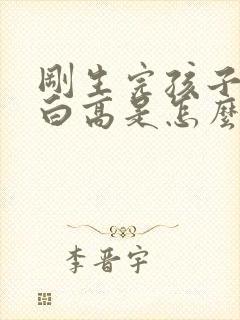 剛生完孩子
白高是怎麼
李晋宇